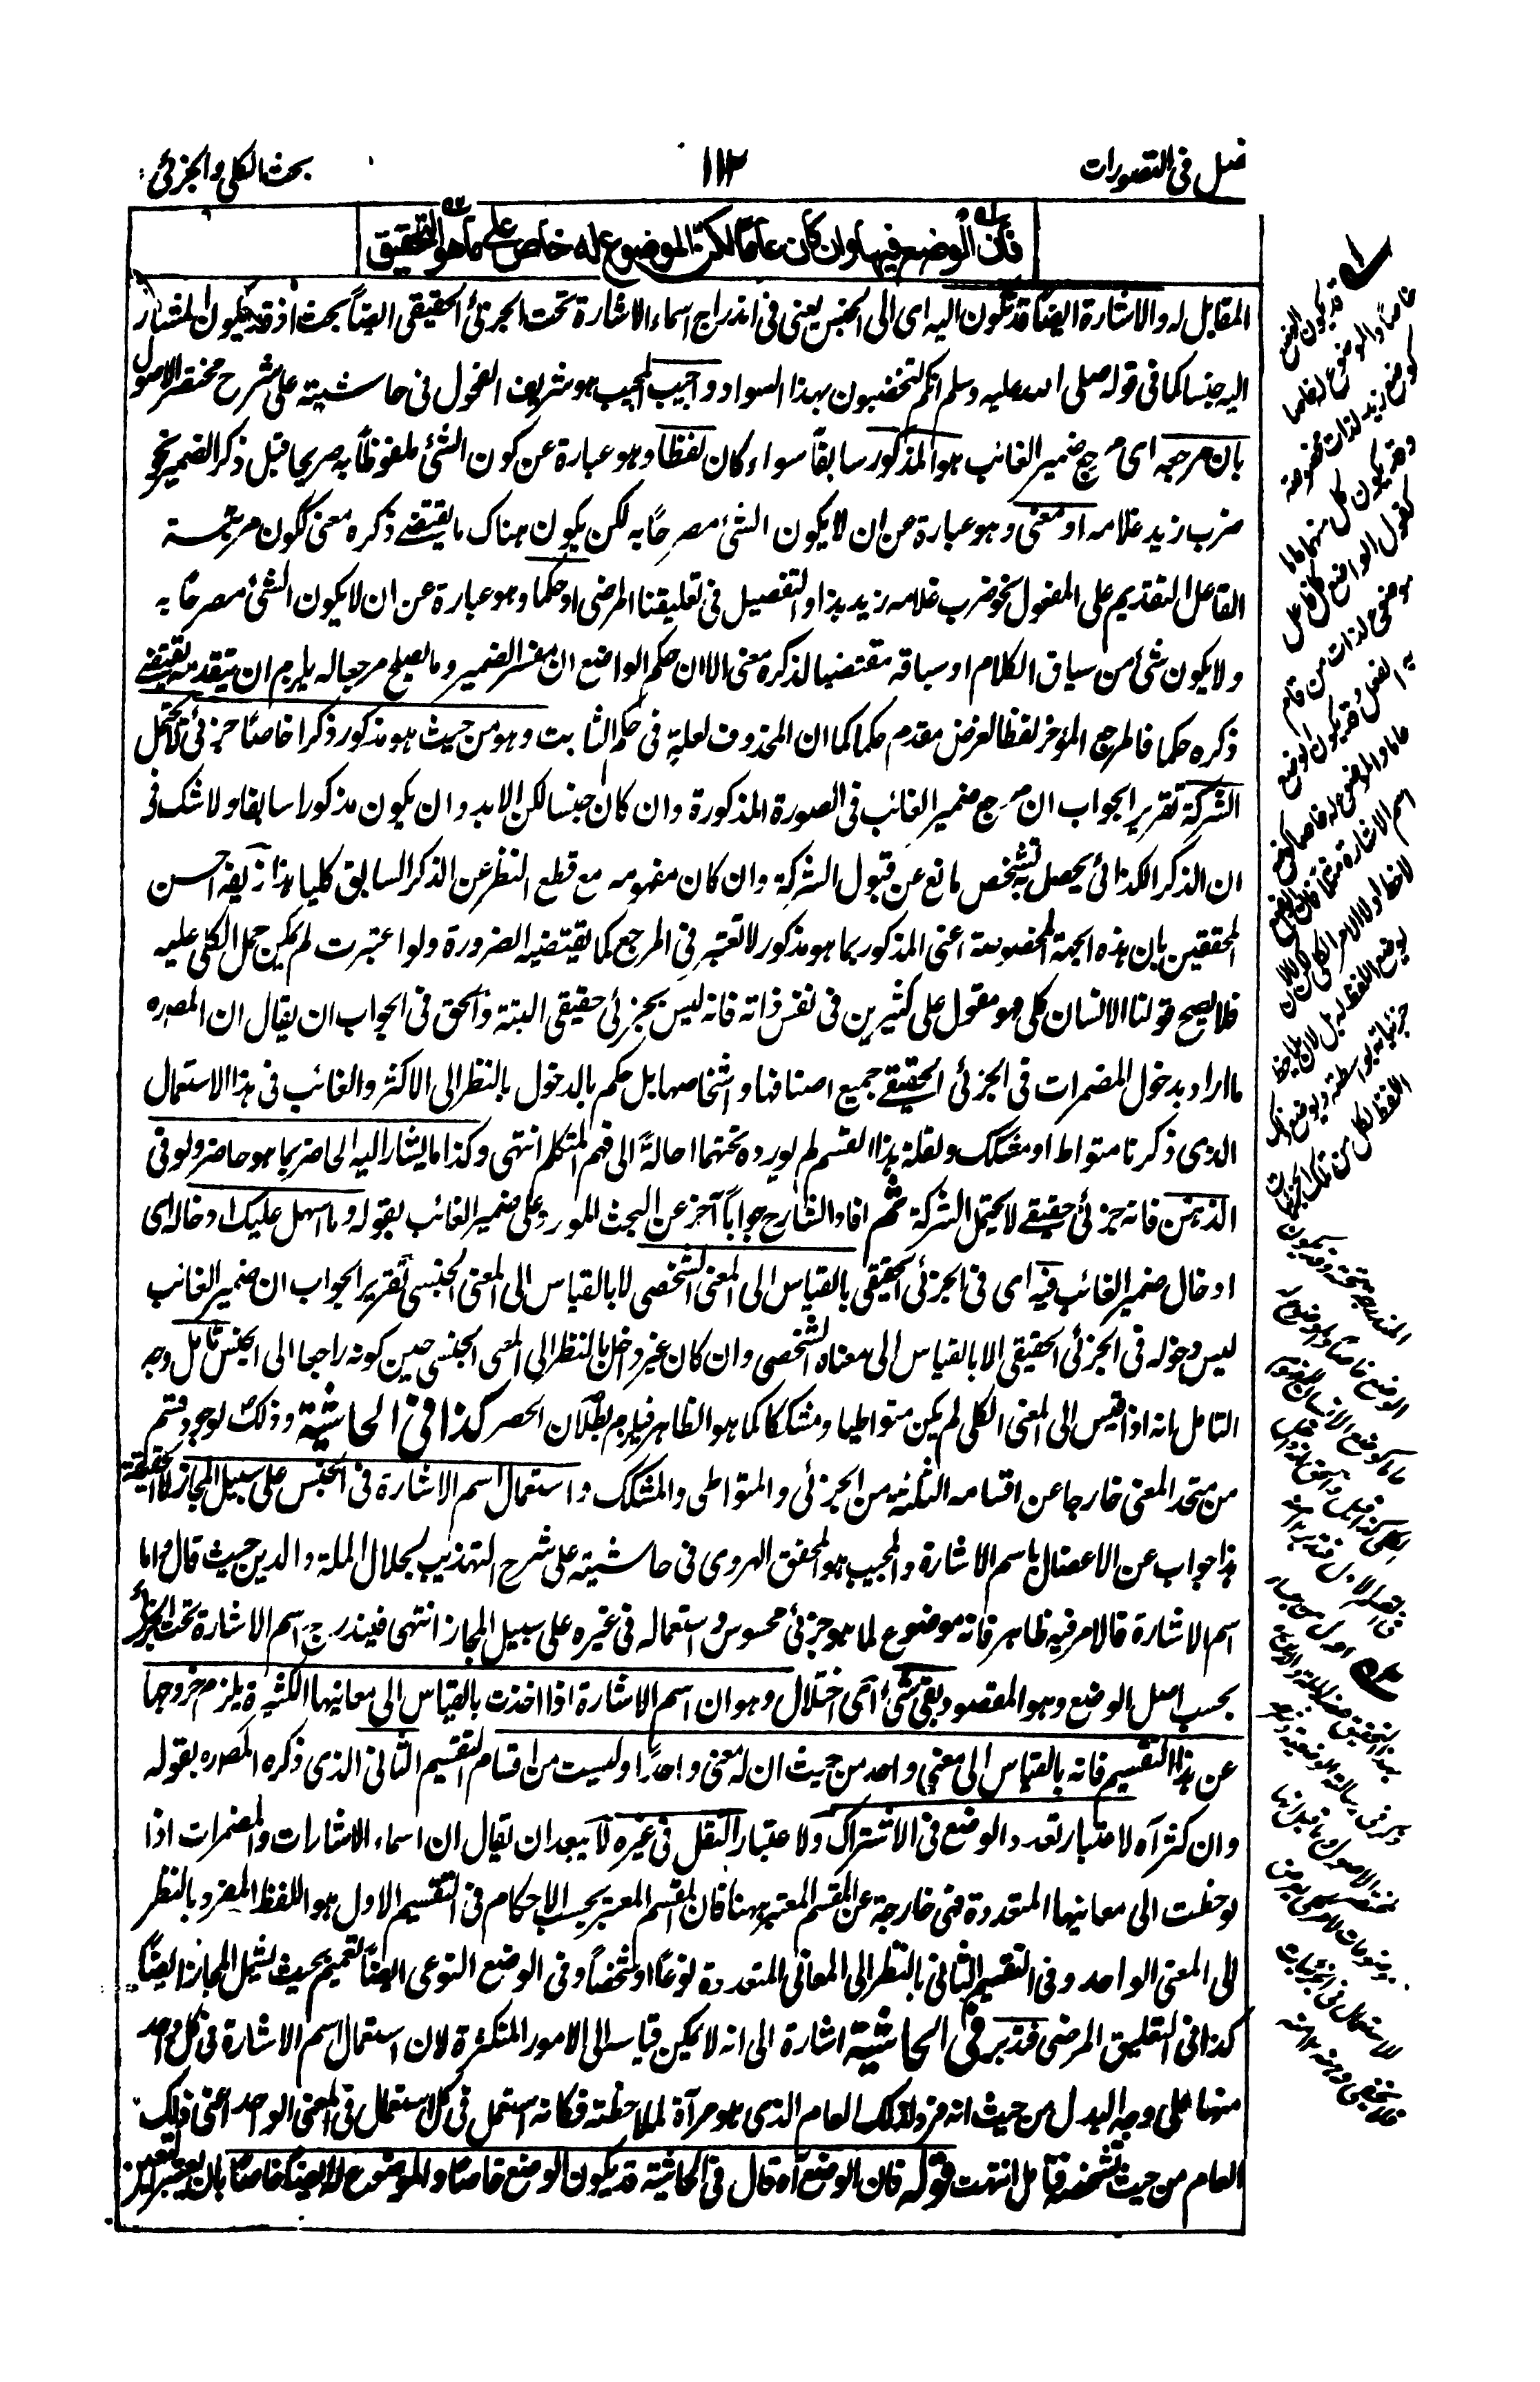 فصل فى التصورات
١١٢
بحث الكلى والجزئى
فان الوضع فيها وان كان عاما لكن الموضوع له خاص على ما هو التحقيق
المقابل له والاشارة ايضا قد تكون اليه اى الى الجنس يعنى فى اندراج اسماء الاشارة تحت الجزئى الحقيقى ايضاً بحث اذ قد يكون المشار
اليه جنسا كما فى قوله صلى الله عليه وسلم انكم لتخضبون بهذا السواد واجيب المجيب هو شريف الفحول فى حاشيته على شرح مختصر الاصول
بان مرجعه اى مرجع ضمير الغائب هو المذكور سابقاً سواء كان لفظاً وهو عبارة عن كون الشئ ملفوظاً به صريحا قبل ذكر الضمير نحو
ضرب زيد غلامه او معنى وهو عبارة عن ان لا يكون الشئ مصرحًا به لكن يكون هناك ما يقتضے ذكره معنى ككون مرتبة
الفاعل التقديم على المفعول نحو ضرب غلامه زيد هذا والتفصيل فى تعليقنا المرضى او حكما وهو عبارة عن ان لا يكون الشئ مصرحًا به
ولا يكون شئ من سياق الكلام او سباقه مقتضيا لذكره معنى الا ان حكم الواضع ان مفسر الضمير وما يصلح مرجعا له يلزم ان يتقدمه يقتضے
ذكره حكما فالمرجع المؤخر لفظا لغرض مقدم حكما كما ان المحذوف لعلة فى حكم الثابت وهو من حيث هو مذكور ذكرا خاصًا جزئى لا يحتمل
الشركة تقرير الجواب ان مرجع ضمير الغائب فى الصورة المذكورة وان كان جنسا لكن لابد وان يكون مذكورا سابقا ولا شك فى
ان الذكر الكذائى يحصل به تشخص مانع عن قبول الشركة وان كان مفهومه مع قطع النظر عن الذكر السابق كليا هذا زيفه احسن
المحققين بان هذه الجهة المخصوصة اعنى المذكور بما هو مذكور لا تعتبر فى المرجع كما يقتضيه الضرورة ولو اعتبرت لم يمكن حمل الكلى عليه
فلا يصح قولنا الانسان كلى وهو مقول على كثيرين فى نفس ذاته فانه ليس بجزئى حقيقى البتة والحق فى الجواب ان يقال ان المصره
ما اراد بدخول المضمرات فى الجزئى الحقيقے جميع اصنافها واشخاصها بل حكم بالدخول بالنظر الى الاكثر والغائب فى هذا الاستعمال
الذى ذكرنا متواط او مشكك ولقلة هذا القسم لم يورده تحتهما احالةً الى فهم المتكلم انتهى وكذا ما يشار اليه الحاضر بما هو حاضر ولو فى
الذهن فانه جزئى حقيقے لا يحتمل الشركة ثم افاد الشارح جواباً آخر عن البحث المورد على ضمير الغائب بقوله وما اسهل عليك ادخاله اى
ادخال ضمير الغائب فيه اى فى الجزئى الحقيقى بالقياس الى المعنى الشخصى لا بالقياس الى المعنى الجنسى تقرير الجواب ان ضمير الغائب
ليس دخوله فى الجزئى الحقيقى الا بالقياس الى معناه الشخصى وان كان غير داخل بالنظر الى المعنى الجنسى حين كونه راجعا الى الجنس تامل وجه
التامل انه اذا قيس الى المعنى الكلى لم يكن متواطيا ومشككا كما هو الظاهر فيلزم بطلان الحصر كذا فى الحاشية وذلك لوجود قسم
من متحد المعنى خارجا عن اقسامه الثلثة من الجزئى والمتواطى والمشكك واستعمال اسم الاشارة فى الجنس على سبيل المجاز لا الحقيقة
هذا جواب عن الاعضال باسم الاشارة والمجيب هو المحقق الهروى فى حاشيته على شرح التهذيب لجلال الملة والدين حيث قال واما
اسم الاشارة فالامر فيه ظاهر فانه موضوع لما هو جزئى محسوس واستعماله فى غيره على سبيل المجاز انتهى فيندرج اسم الاشارة تحت الجزئى
بحسب اصل الوضع وهو المقصود بقى شئ اى اختلال وهو ان اسم الاشارة اذا اخذت بالقياس الى معانيها الكثيرة يلزم خروجها
عن هذا التقسيم فانه بالقياس الى معنى واحد من حيث ان له معنى واحدًا وليست من اقسام التقسيم الثانى الذى ذكره المصره بقوله
وان كثر آه لاعتبار تعدد الوضع فى الاشتراك ولاعتبار النقل فى غيره لا يبعد ان يقال ان اسماء الاشارات والمضمرات اذا
لوحظت الى معانيها المتعددة فهى خارجة عن المقسم المعتبر ههنا فان المقسم المعتبر بحسب الاحكام فى التقسيم الاول هو اللفظ المفرد بالنظر
الى المعنى الواحد وفى التقسيم الثانى بالنظر الى المعانى المتعددة نوعًا او شخصاً وفى الوضع النوعى ايضاً تعميم بحيث يشمل المجاز ايضاً
كذا فى التعليق المرضى فتدبر فى الحاشية اشارة الى انه لا يمكن قياسه الى الامور المتكثرة لان استعمال اسم الاشارة فى كل واحد
منها على وجه البدل من حيث انه فرد لذلك العام الذى هو مرآة لملاحظته فكانه استعمل فى كل استعمال فى المعنى الواحد اعنى ذلك
العام من حيث تشخصه فتامل انتهت قوله فان الوضع آه قال فى الحاشية قد يكون الوضع خاصًا والموضوع له ايضا خاصًا بان يعتبر
قد يكون الوضع
خاصا والموضوع له خاصا
كوضع زيد لذات مخصوصة
وقد يكون كل منهما عاما
كقول الواضع كل فاعل
موضوع لذات من قام
به الفعل وقد يكون الوضع
عاما والموضوع له خاصا كوضع
اسم الاشارة